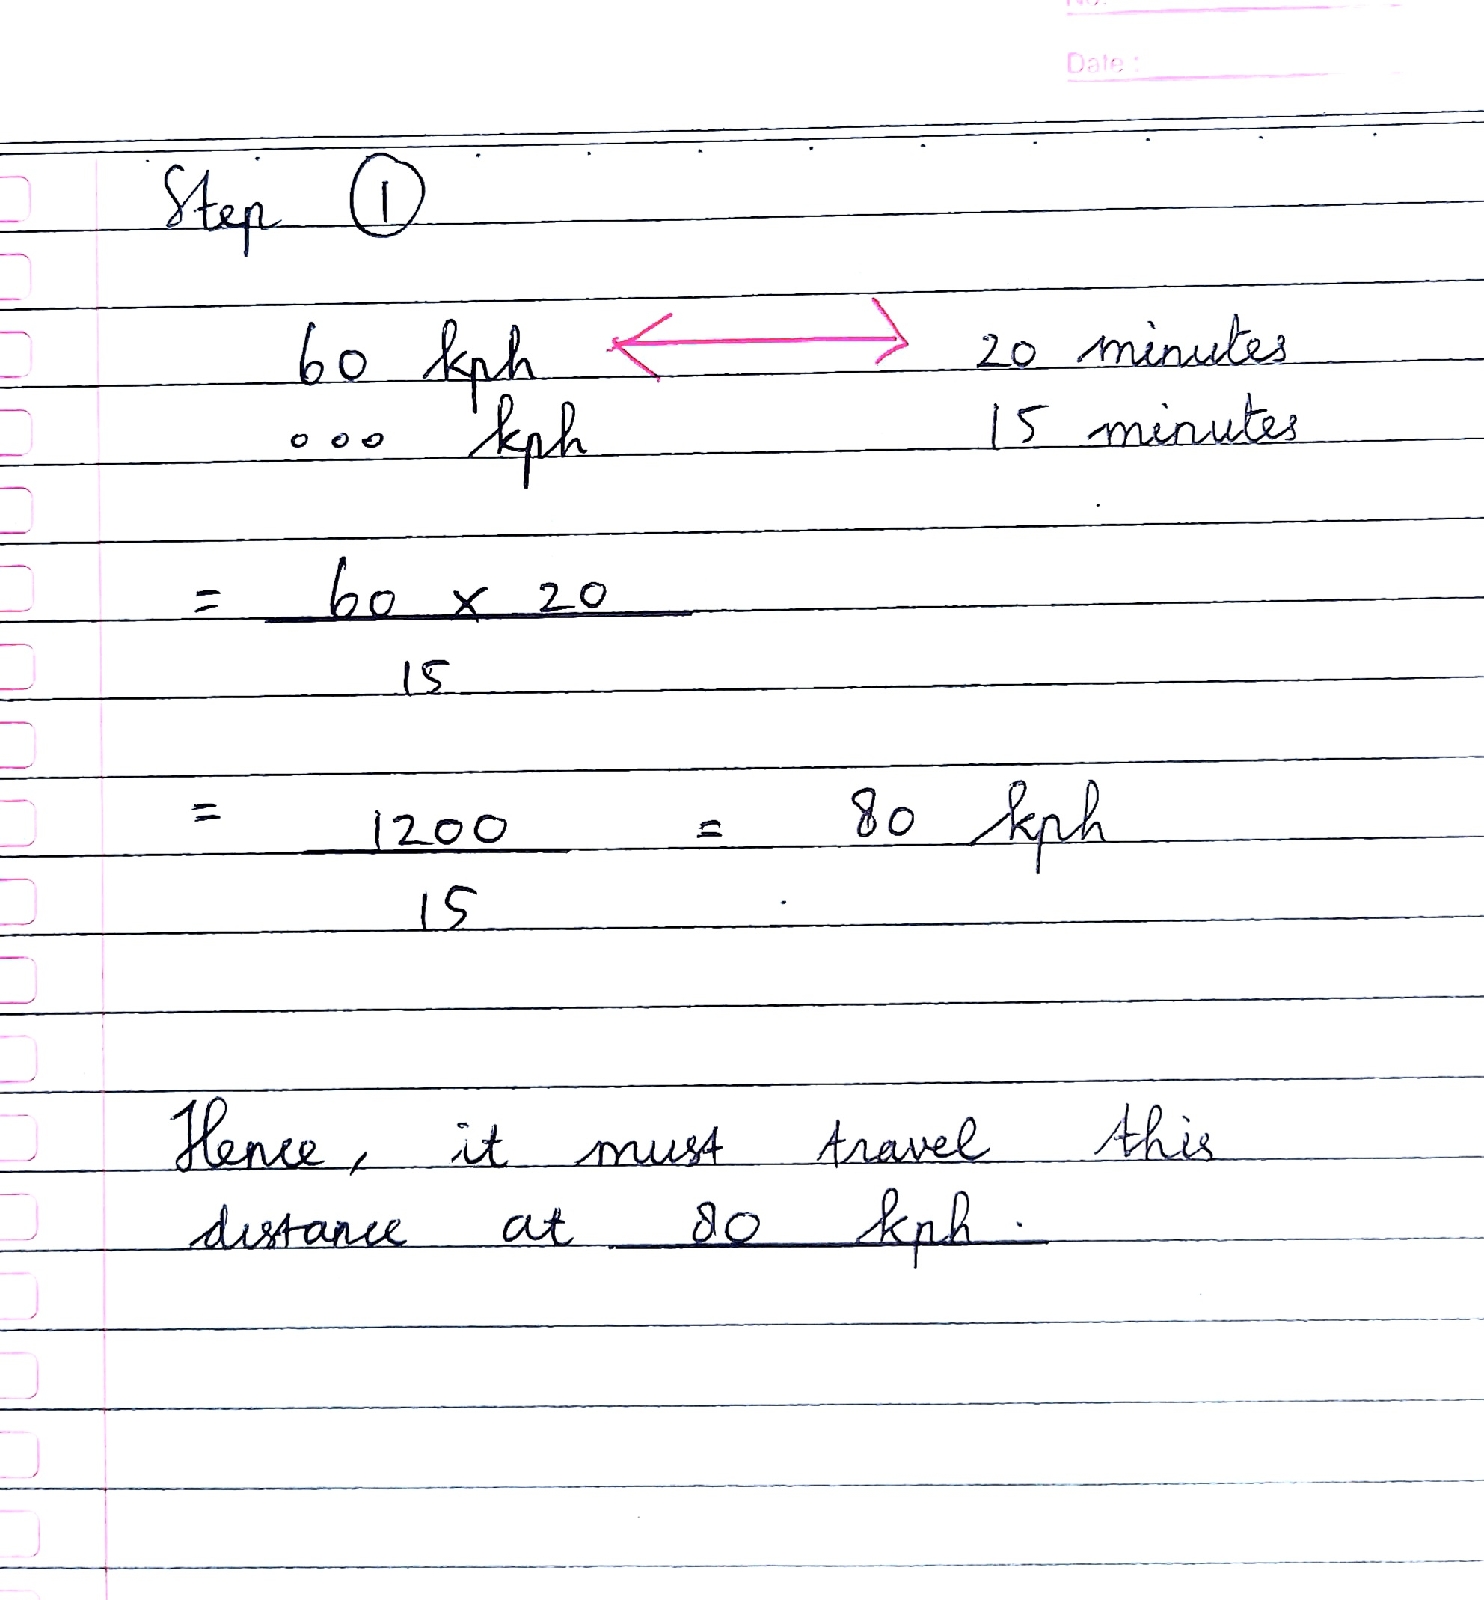 Date :
Step ①
60 kph ⟷ 20 minutes
... kph 15 minutes
= 60 x 20
15
= 1200 = 80 kph
15
Hence, it must travel this
distance at 80 kph.